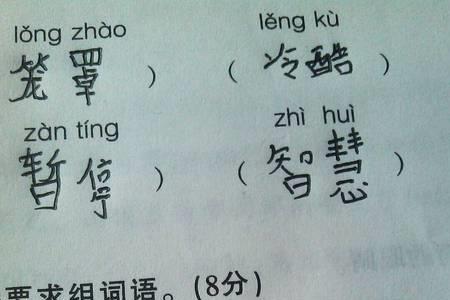 lǒng zhào lěng kù
笼罩 ） （ 冷酷 ）
zàn tíng zhì huì
暂停 ） （ 智慧 ）
要求组词语。(8分)